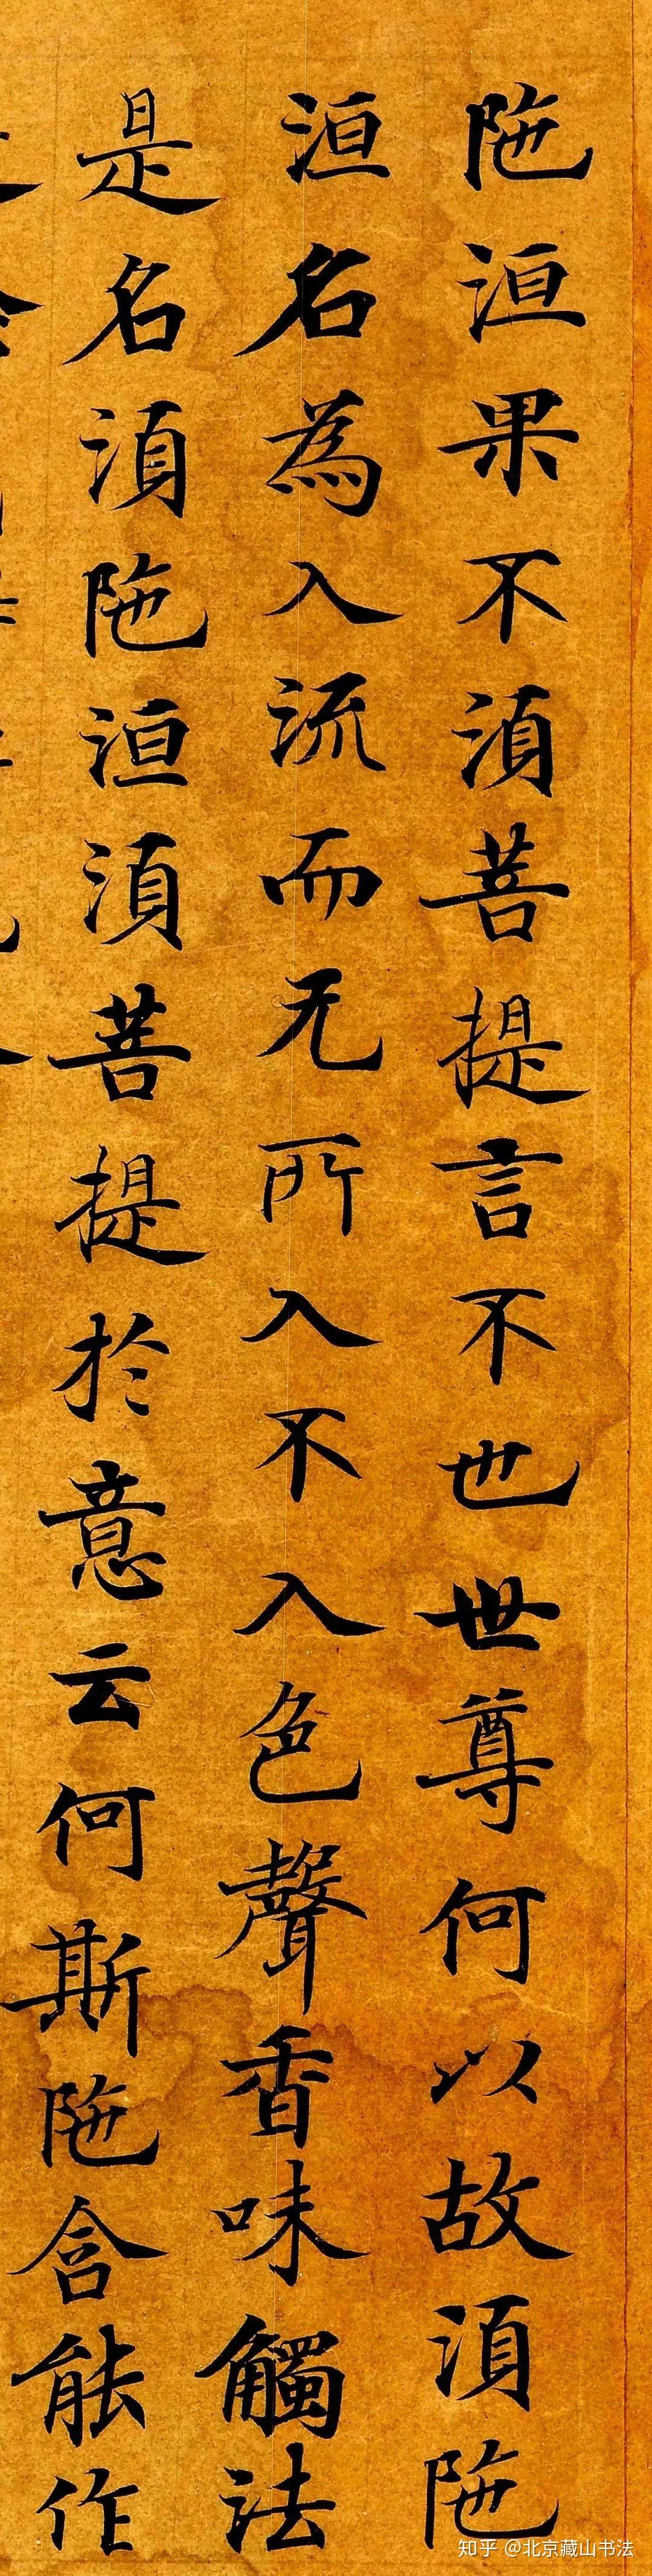 陁洹果不湏菩提言不也世尊何以故湏陁
洹名為入流而无所入不入色聲香味觸法
是名湏陁洹湏菩提於意云何斯陁含能作
知乎 @北京藏山书法